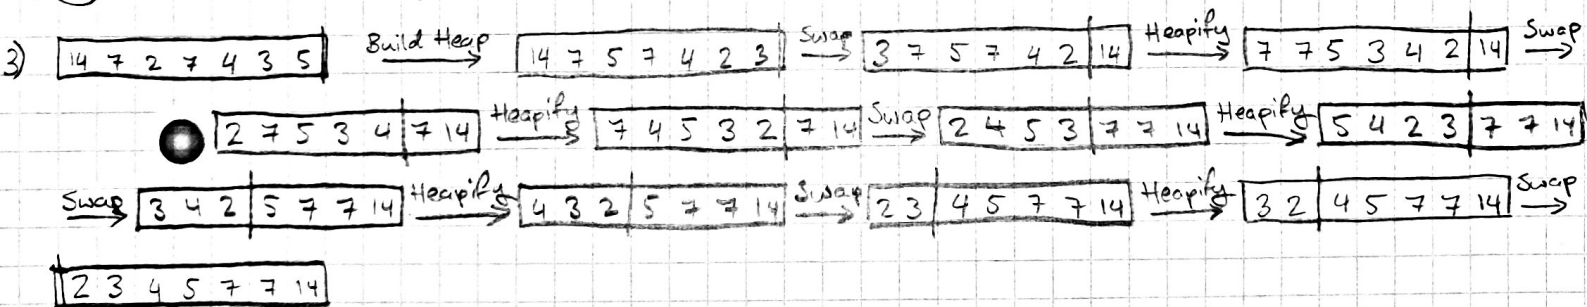 3) 14 7 2 7 4 3 5 Build Heap 14 7 5 7 4 2 3 Swap 3 7 5 7 4 2 14 Heapify 7 7 5 3 4 2 14 Swap
2 7 5 3 4 7 14 Heapify 7 4 5 3 2 7 14 Swap 2 4 5 3 7 7 14 Heapify 5 4 2 3 7 7 14
Swap 3 4 2 5 7 7 14 Heapify 4 3 2 5 7 7 14 Swap 2 3 4 5 7 7 14 Heapify 3 2 4 5 7 7 14 Swap
2 3 4 5 7 7 14